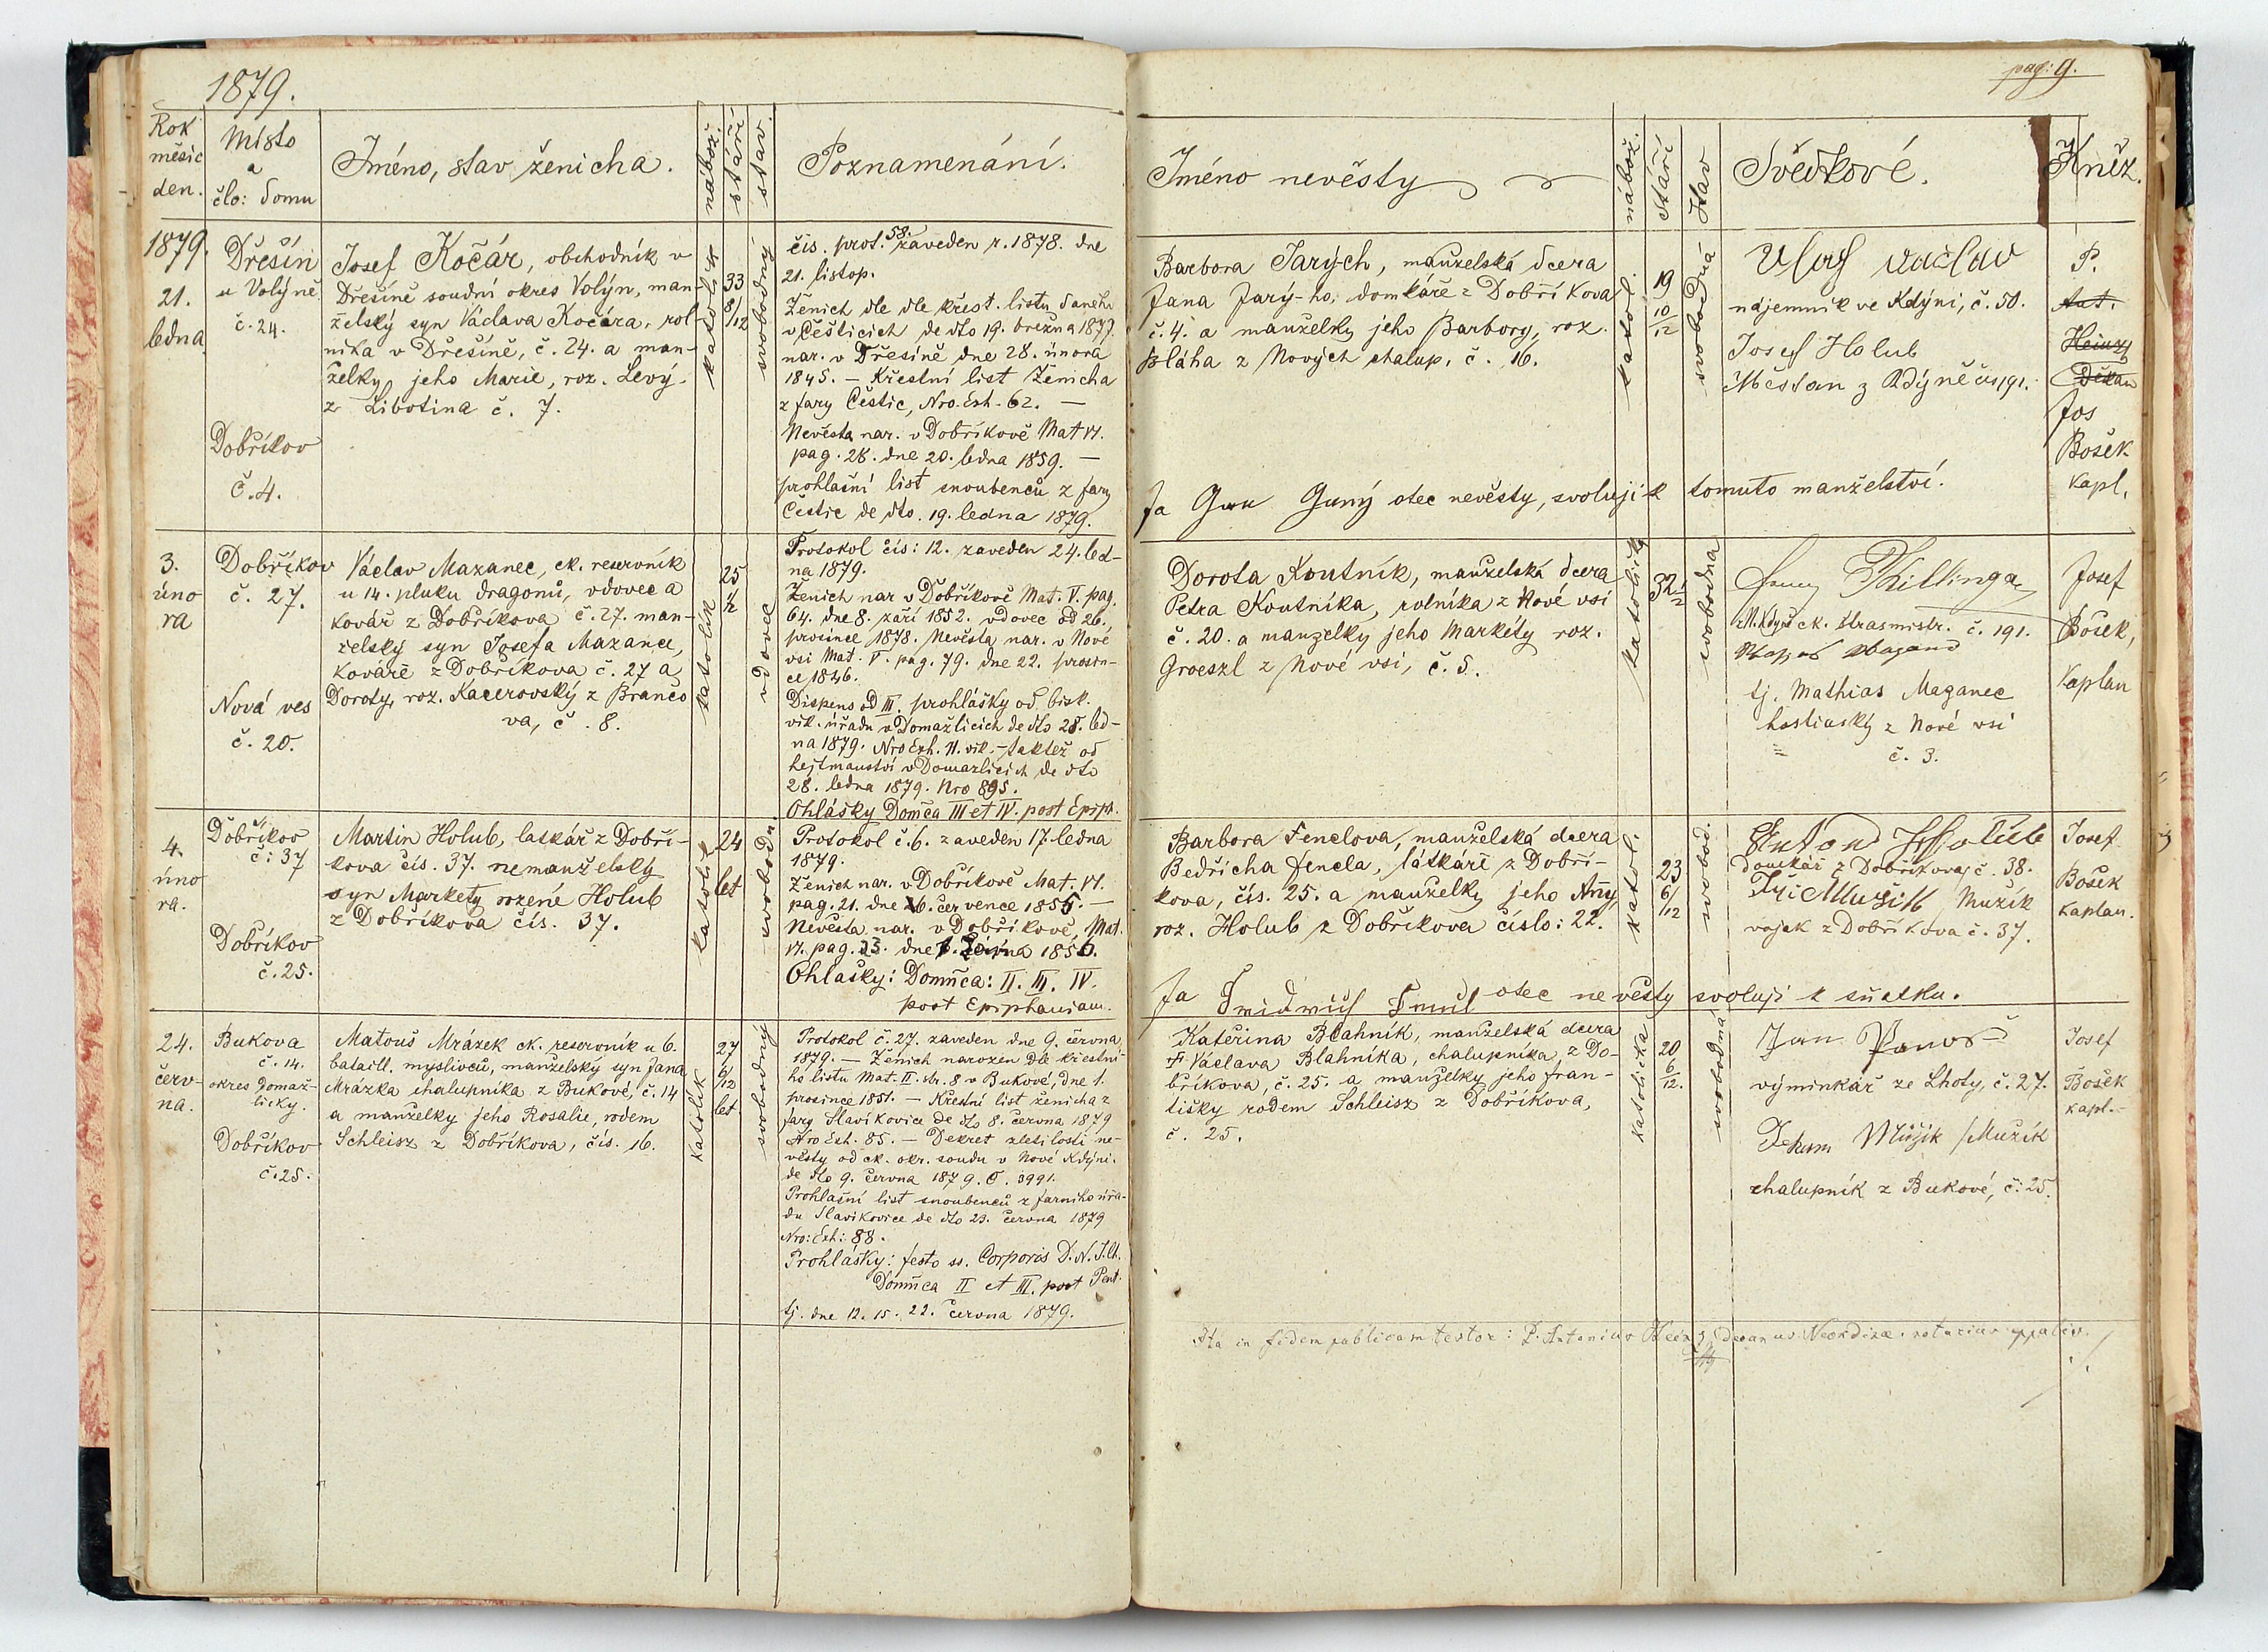 1879.
pag: 9.
Rok
měsíc
den.
Místo
a
člo: domu
Jméno, stav ženicha.
nábož.
stáří
stav.
Poznamenání.
Jméno nevěsty
nábož.
Stáří
Stav
Svědkové.
Kněz.
1879.
21.
ledna
Dřešín
u Volyně
č. 24.
Dobříkov
č. 4.
Josef Kočár, obchodník v
Dřešíně soudní okres Volýn, man-
želský syn Václava Kočára, rol-
níka v Dřešíně, č. 24. a man-
želky jeho Marie, roz. Levý
z Libotina č. 7.
katolík
33
8/12
svobodný
čís. prot. 58. zaveden r. 1878. dne
21. listop.
Ženich dle dle křest. listu daného
v Čěšticích de dto 19. března 1877.
nar. v Dřešíně dne 28. února
1845. — Křestní list Ženicha
z fary Čestic, Nro. Exh. 62. —
Nevěsta nar. v Dobříkově Mat VI.
pag. 28. dne 20. ledna 1859. —
prohlašní list snoubenců z fary
Čestic de dto. 19. ledna 1879.
Barbora Jarých, manželská dcera
Jana Jarý-ho, domkáře z Dobříkova
č. 4. a manželky jeho Barbory, roz.
Bláha z Nových chalup, č. 16.
katol.
19
10/12
svobodná
václav
nájemník ve Kdýni, č. 50.
Josef Holub
Měšťan z Kdýně čís 191.
P.
Ant.
Heinz
Děkan
Jos
Bošek
kapl.
Ja Jan Jarný otec nevěsty, svoluji k tomuto manželství.
3.
úno
ra
Dobříkov
č. 27.
Nová ves
č. 20.
Václav Mazanec, ck. reservník
u 14. pluku dragonů, vdovec a
kovář z Dobříkova č. 27. man-
želský syn Josefa Mazance,
kováře z Dobříkova č. 27 a
Doroty, roz. Kacerovský z Brančo
va, č. 8.
katolík
25
1/2
vdovec
Protokol čís: 12. zaveden 24. led-
na 1879.
Ženich nar v Dobříkově Mat. V. pag.
64. dne 8. září 1852. vdovec od 26.
prosince 1878. Nevěsta nar. v Nové
vsi Mat. V. pag. 79. dne 22. prosin-
ce 1846.
Dispens od III. prohlášky od bisk.
vik. úřadu v Domažlicích de dto 28. led-
na 1879. Nro Exh. 11. vik. — taktéž od
hejtmanství v Domažlicích de dto
28. ledna 1879. Nro 895.
Ohlášky Domca III et IV. post Epiph.
Dorota Koutník, manželská dcera
Petra Koutníka, rolníka z Nové vsi
č. 20. a manželky jeho Markéty roz.
Groeszl z Nové vsi, č. 5.
katolička
32 1/2
svobodna
ck. strasmistr. č. 191.
tj. Mathias Maganec
hostinský z Nové vsi
č. 3.
Josef
Bošek,
Kaplan
4.
úno
ra.
Dobříkov
č: 37
Dobříkov
č. 25.
Martin Holub, laskář z Dobří-
kova čís. 37. nemanželský
syn Markety rozené Holub
z Dobříkova čís. 37.
katolík
24
let
svobodn.
Protokol č. 6. zaveden 17. ledna
1879.
Ženich nar. v Dobříkově Mat. VI.
pag. 21. dne 26. července 1855. —
Nevěsta nar. v Dobříkově, Mat.
VI. pag. 23. dne 1. 1856.
Ohlašky: Domca: II. III. IV.
post Epiphaniam.
Barbora Fenclova, manželská dcera
Bedřicha Fencla, látkáře z Dobří-
kova, čís. 25. a manželky jeho Anny
roz. Holub z Dobříkova číslo: 22.
katol.
23
6/12
svobod.
Anton Holub
domkář z Dobříkova, č. 38.
Jiří Mužik Mužík
vojak z Dobříkova č. 37.
Josef
Bošek
kaplan.
Ja otec nevěsty svoluji k sňatku.
24.
červ-
na.
Bukova
č. 14.
okres Domaž-
licky.
Dobříkov
č. 25.
Matouš Mrázek ck. reservník u 6.
bataill. myslivců, manželský syn Jana
Mrázka chalupníka z Bukové, č. 14
a manželky jeho Rosalie, rodem
Schleisz z Dobříkova, čís. 16.
katolík
27
6/12
let
svobodný
Protokol č. 27. zaveden dne 9. června
1879. — Ženich narozen dle křestní-
ho listu Mat. II. str. 8 v Bukové, dne 1.
prosince 1851. — Křestní list ženicha z
fary Slavíkovice de dto 8. června 1879
Nro Exh. 85. — Dekret zletilosti ne-
věsty od ck. okr. soudu v Nové Kdýni.
de dto 9. června 1879. C. 3991.
Prohlašní list snoubenců z farního úřa-
du Slavíkovice de dto 23. června 1879
Nro: Exh: 88.
Prohlášky: festo ss. Corporis D. N. J. Ch.
Domca II et III. post Pent.
tj. dne 12. 15. 22. června 1879.
Kateřina Blahník, manželská dcera
† Václava Blahníka, chalupníka z Do-
bříkova, č. 25. a manželky jeho Fran-
tišky rodem Schleisz z Dobříkova,
č. 25.
katolicka
20
6/12.
svobodná
Jan
výminkář ze Lhoty, č. 27.
Mužik /Mužík
chalupník z Bukové, č: 25.
Josef
Bošek
kapl.—
Ita in fidem publicam testor: P. Antonius Heinz, decanus Neokdine. notarius